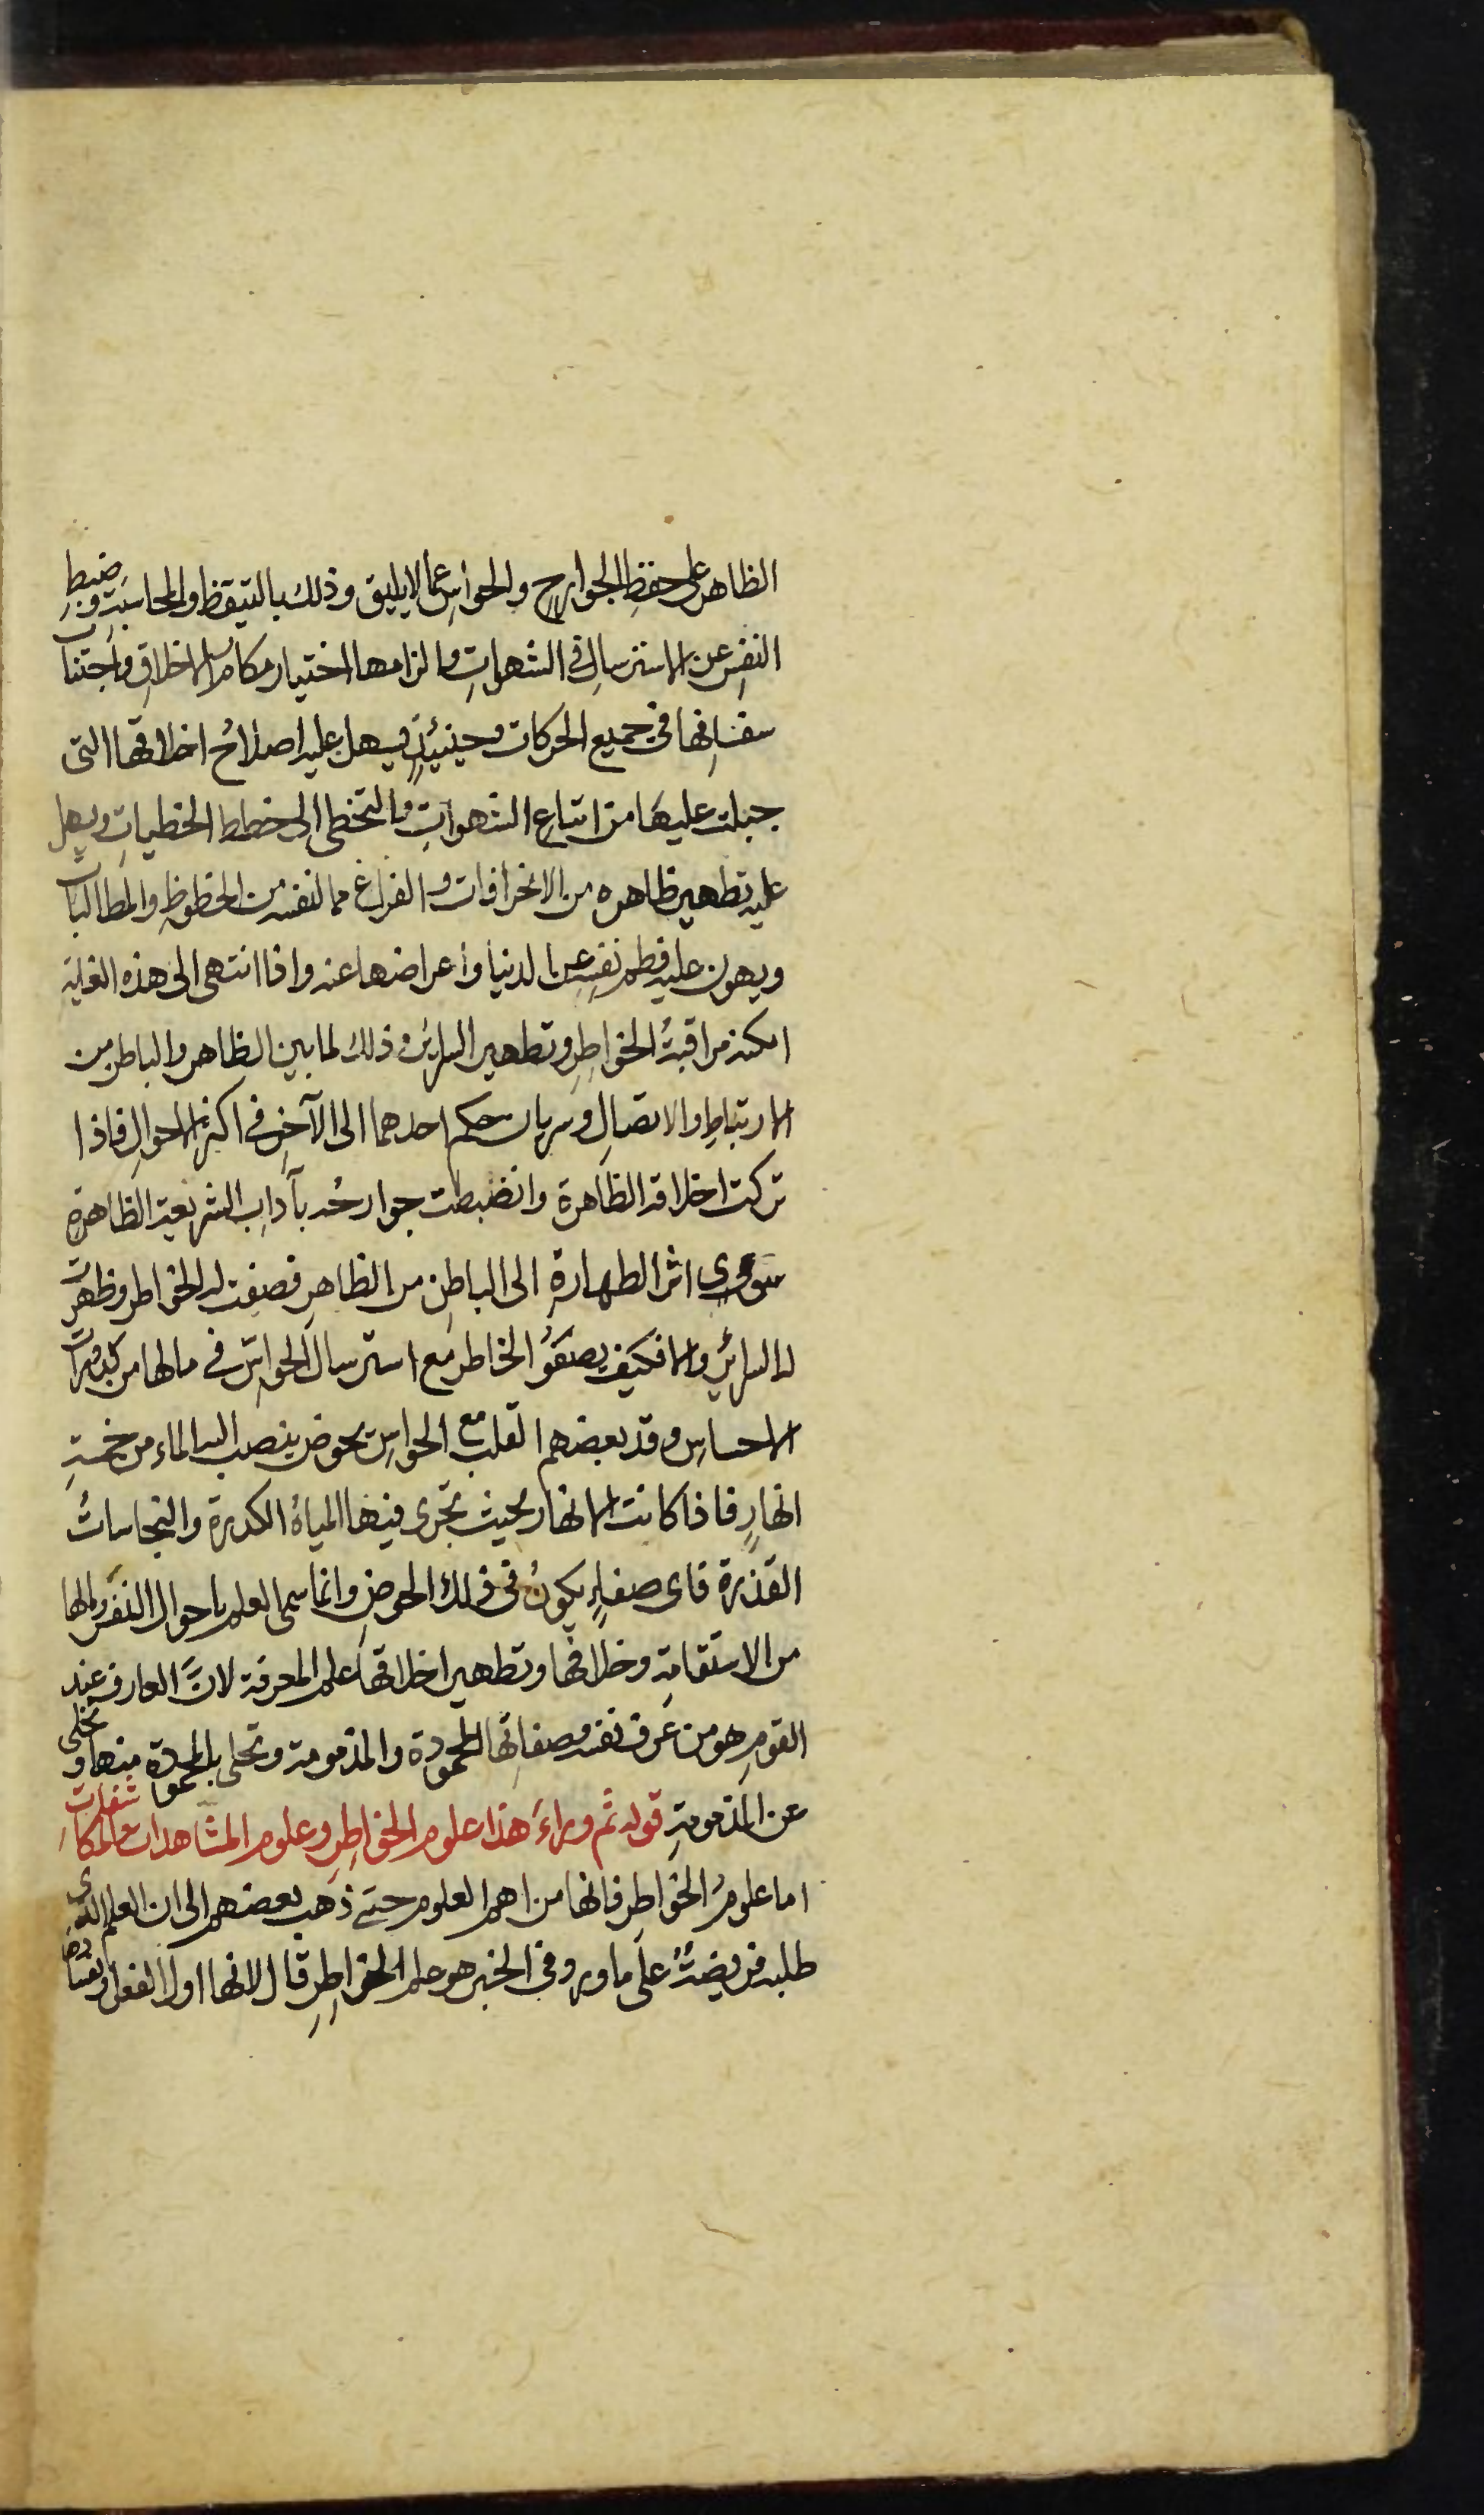 الظاهر على حفظِ الجوارحِ والحواسِ عما لا يليق وذلك بالتيقظ والمحاسبةِ وضبطِ
النفسِ عن الاسترسالِ في الشهواتِ والزامها اختيار مكارم الاخلاقِ واجتناب
سفسافِها في جميع الحركات وحينئيذٍ يسهل عليه اصلاحُ اخلاقها التى
جبلت عليها من اتباعِ الشهواتِ والتخطى الى خطط الخطيباتِ ويسهل
عليه تطهير ظاهره من الانحرافات والفراغ مما لنفسه من الحظوظِ والمطالبات
ويهون عليه فطم نفسِه عن الدنيا واعراضها عنه واذا انتهى الى هذه الغاية
امكنه مراقبةُ الخواطِرِ وتطهير السرائر وذلك لما بين الظاهر والباطن من
الارتباطِ والاتصالِ وسريان حكم احدهما الى الآخرِ في اكثر الاحوالِ فاذا
تركت اخلاقه الظاهرة وانضبطت جوارحُه بآدابِ الشريعة الظاهرةِ
سرى اثر الطهارةِ الى الباطِنِ من الظاهرِ فصفت له الخواطر وظهرت
له السرائرِ والا فكيف يصفَوُ الخاطر مع استرسال الحواسِ في مالها من كدورات
الاحساسِ وقد بعضهم القلب مع الحواسِ بحوض ينصب اليه الماء من خمسةِ
انهارٍ فاذا كانت الانهار بحيث تجرى فيها المياهُ الكدرة والنجاساتُ
القذرة فاى صفاءٍ يكونُ في ذلك الحوضِ وانما سمى العلم باحوال النفس ومالها
من الاستقامةِ وخلافها وتطهير اخلاقها علم المعرفة لانَّ العارف عند
القومِ هو من عرف نفسه وصفاتِها المحمودة والمذمومة وتحلى بالمحمودة منها وتخلى
عن المذمومةِ قوله ثم وراءَ هذا علوم الخواطِرِ وعلوم المشاهدات والمكاشفات
اما علومُ الخواطِر فانها من اهم العلوم حتى ذهب بعضهم الى ان العلم الذى
طلبه فريضةٌ على ما ورد في الخبر هو علم الخواطِرِ قال لانها اول الفعل وبفسادها